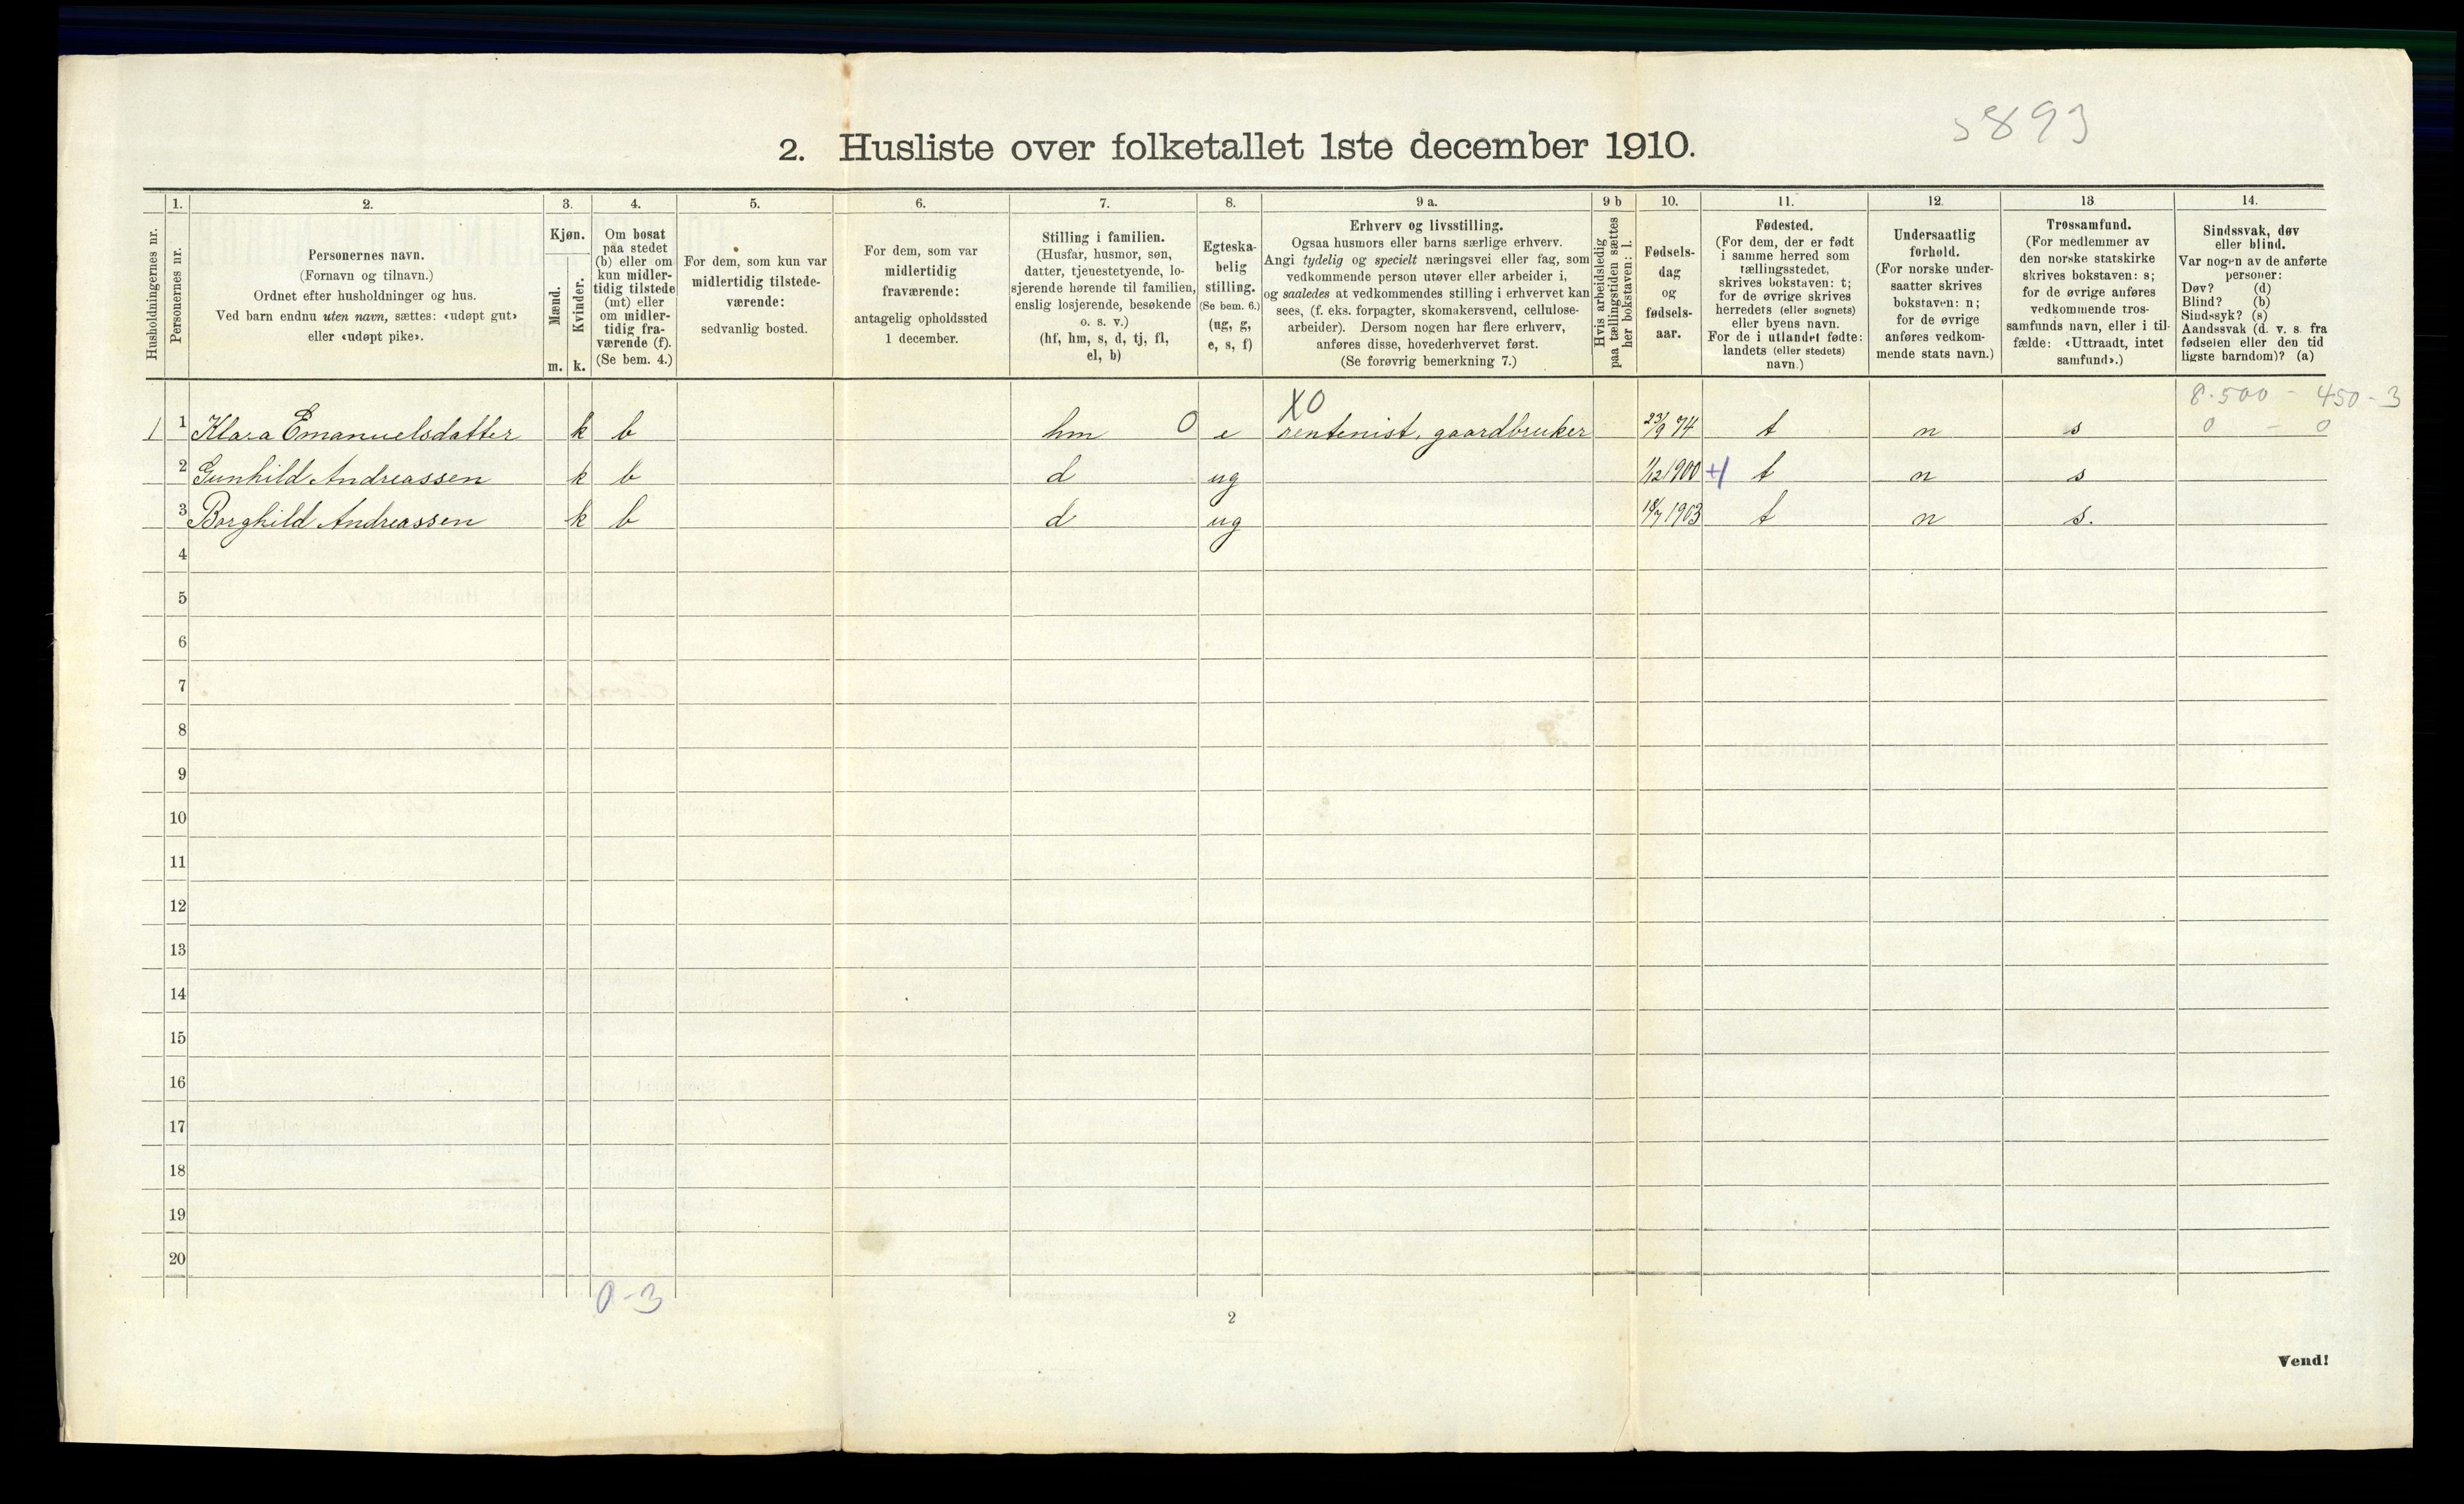 5893
2. Husliste over folketallet 1ste december 1910.
Husholdningernes nr.
1.
Personernes nr.
2.
Personernes navn.
(Fornavn og tilnavn.)
Ordnet efter husholdninger og hus.
Ved barn endnu uten navn, sættes: «udøpt gut»
eller «udøpt pike».
3.
Kjøn.
Mænd.
Kvinder.
m. k.
4.
Om bosat
paa stedet
(b) eller om
kun midler-
tidig tilstede
(mt) eller
om midler-
tidig fra-
værende (f).
(Se bem. 4.)
5.
For dem, som kun var
midlertidig tilstede-
værende:
sedvanlig bosted.
6.
For dem, som var
midlertidig
fraværende:
antagelig opholdssted
1 december.
7.
Stilling i familien.
(Husfar, husmor, søn,
datter, tjenestetyende, lo-
sjerende hørende til familien,
enslig losjerende, besøkende
o. s. v.)
(hf, hm, s, d, tj, fl,
el, b)
8.
Egteska-
belig
stilling.
(Se bem. 6.)
(ug, g,
e, s, f)
9 a.
Erhverv og livsstilling.
Ogsaa husmors eller barns særlige erhverv.
Angi tydelig og specielt næringsvei eller fag, som
vedkommende person utøver eller arbeider i,
og saaledes at vedkommendes stilling i erhvervet kan
sees, (f. eks. forpagter, skomakersvend, cellulose-
arbeider). Dersom nogen har flere erhverv,
anføres disse, hovederhvervet først.
(Se forøvrig bemerkning 7.)
9 b
Hvis arbeidsledig
paa tællingstiden sættes
her bokstaven: l.
10.
Fødsels-
dag
og
fødsels-
aar.
11.
Fødested.
(For dem, der er født
i samme herred som
tællingsstedet,
skrives bokstaven: t;
for de øvrige skrives
herredets (eller sognets)
eller byens navn.
For de i utlandet fødte:
landets (eller stedets)
navn.)
12.
Undersaatlig
forhold.
(For norske under-
saatter skrives
bokstaven: n;
for de øvrige
anføres vedkom-
mende stats navn.)
13
Trossamfund.
(For medlemmer av
den norske statskirke
skrives bokstaven: s;
for de øvrige anføres
vedkommende tros-
samfunds navn, eller i til-
fælde: «Uttraadt, intet
samfund».)
14.
Sindssvak, døv
eller blind.
Var nogen av de anførte
personer:
Døv? (d)
Blind? (b)
Sindssyk? (s)
Aandssvak (d. v. s. fra
fødselen eller den tid
ligste barndom)? (a)
X0 8.500 - 450 - 3
1 1 Klara Emanuelsdatter k b hm 0 e rentenist, gaardbruker 23/9 74 t n s 0 - 0
2 Gunhild Andreassen k b d ug 1/12 1900 +1 t n s
3 Borghild Andreassen k b d ug 18/7 1903 t n s.
4
5
6
7
8
9
10
11
12
13
14
15
16
17
18
19
20
0-3
2
Vend!